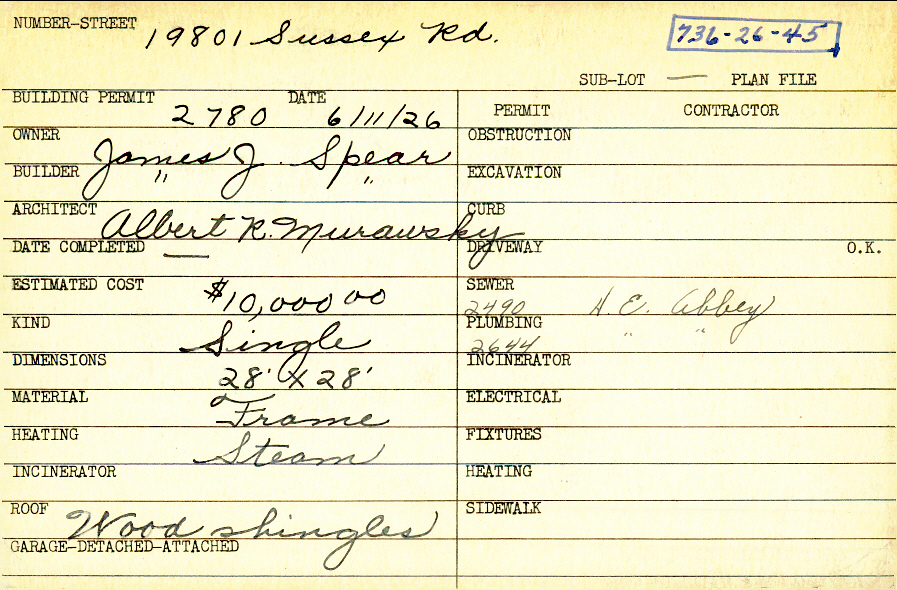 NUMBER-STREET 19801 Sussex Rd.
736-26-45
SUB-LOT — PLAN FILE
BUILDING PERMIT 2780 DATE 6/11/26
PERMIT CONTRACTOR
OWNER James J. Spear
OBSTRUCTION
BUILDER " "
EXCAVATION
ARCHITECT Albert R. Murawsky
CURB
DATE COMPLETED —
DRIVEWAY O.K.
ESTIMATED COST $10,000 00
SEWER 2490 H. E. Abbey
KIND Single
PLUMBING 2644 " "
DIMENSIONS 28' X 28'
INCINERATOR
MATERIAL Frame
ELECTRICAL
HEATING Steam
FIXTURES
INCINERATOR
HEATING
ROOF Wood shingles
SIDEWALK
GARAGE-DETACHED-ATTACHED